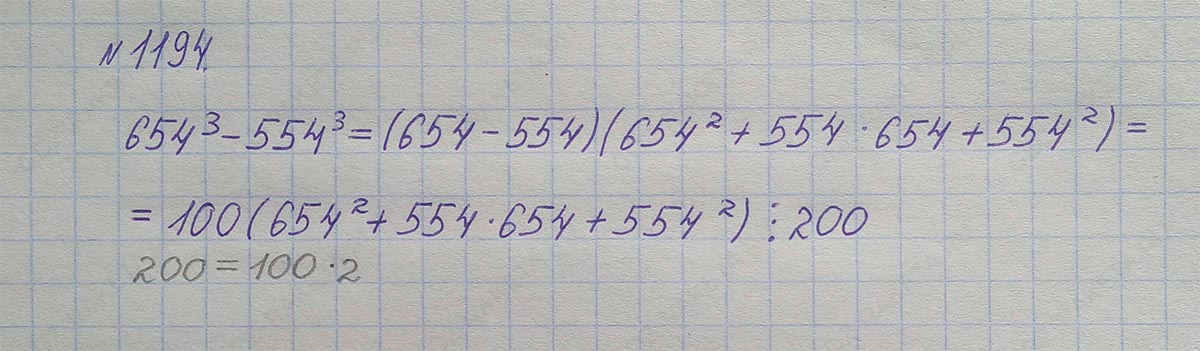 №1194.
654³-554³=(654-554)(654²+554·654+554²)=
=100(654²+554·654+554²)⋮200
200=100·2